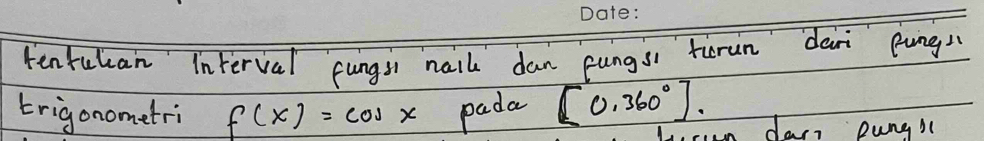 Date:
tentukan Interval fungsi naik dan fungsi turun dari fungsi
trigonometri f(x) = cos x pada [0,360°].
turun dari fungsi